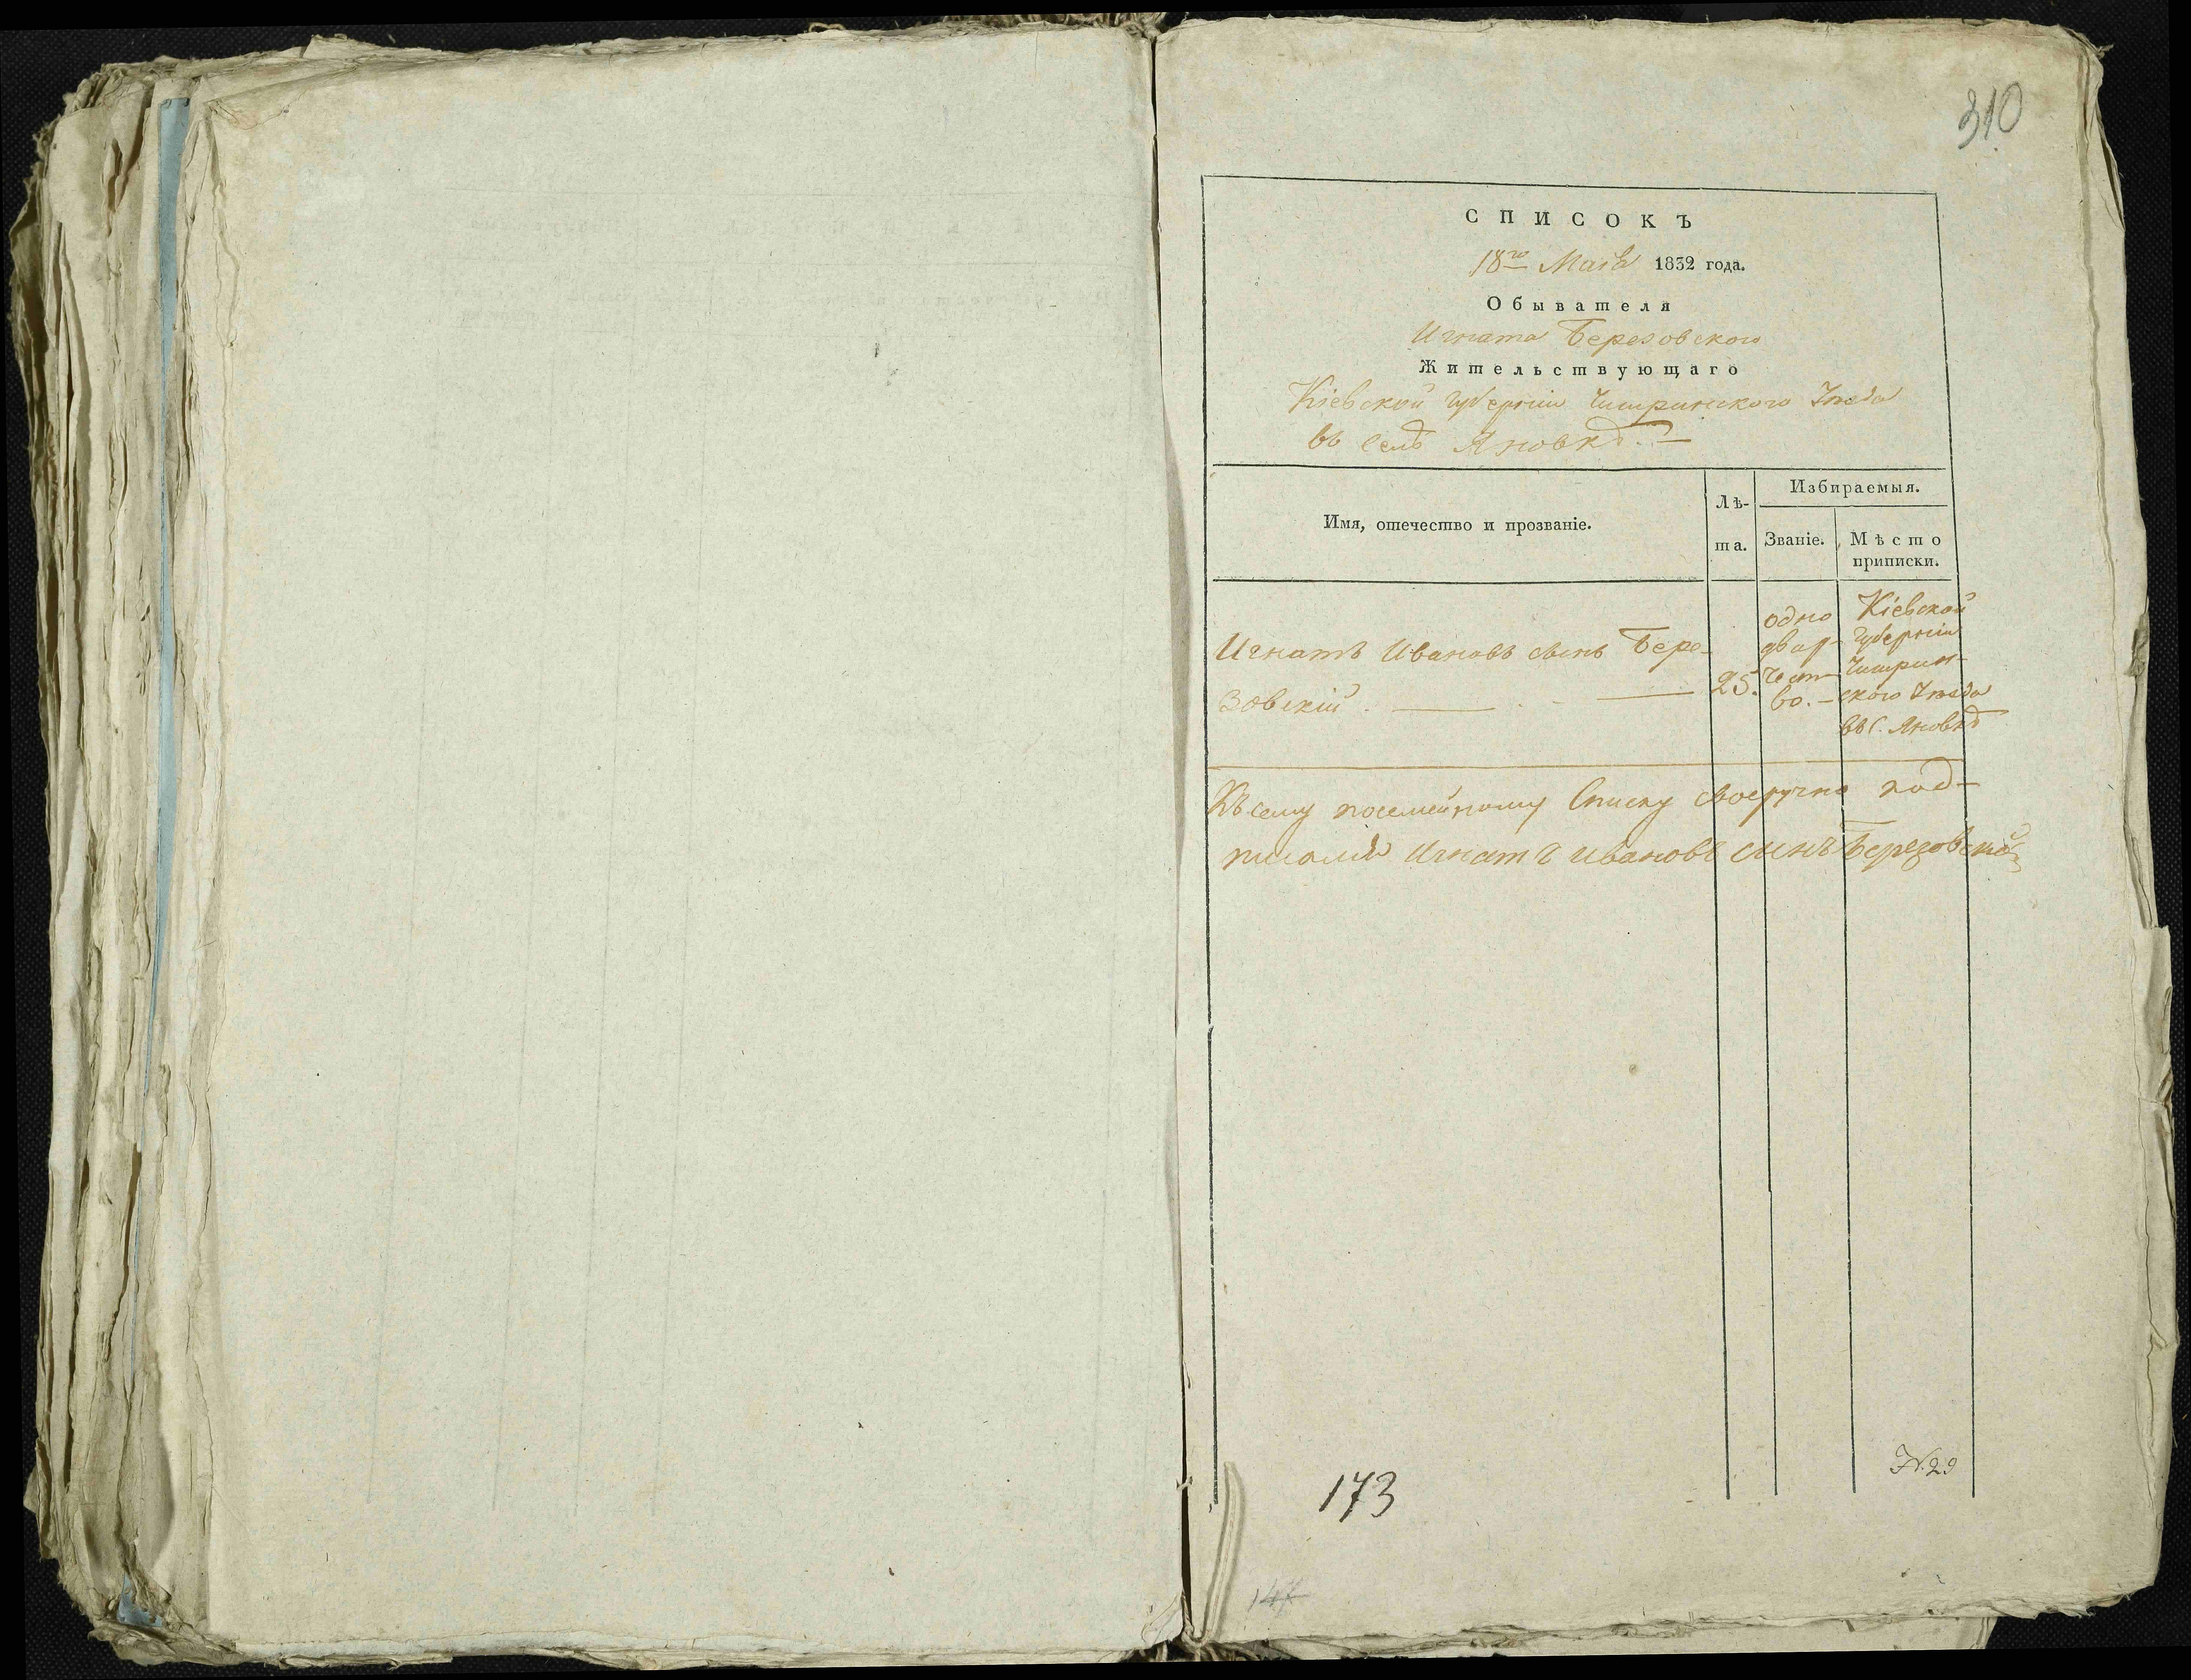 310
СПИСОКЪ
18го Маія 1832 года.
Обывателя
Игната Березовского
Жительствующаго
Кіевской Губерніи Чигринского Уезда
въ Селѣ Яновкѣ. —
Имя, отечество и прозваніе.
Лѣ-
та.
Избираемыя.
Званіе.
Мѣсто
приписки.
Игнатъ Ивановъ сынъ Бере-
зовскій. — — 25.
одно
двор-
чест-
во. —
Кіевской
Губерніи
Чигрин-
ского Уезда
въ С. Яновкѣ
Къ сему посемейному Списку своеручно под-
писался Игнатъ Ивановъ синъ Березовской
№. 29
173
147